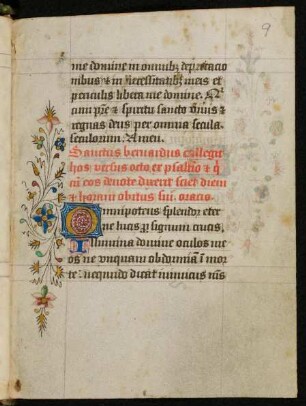 9
me domine in omnibus deprecacio
nibus & in necessitatibus meis et
periculis libera me domine. Qui
cum patre & spiritu sancto vivis &
regnas deus per omnia secula
seculorum. Amen.
Sanctus bernardus collegit
hos versus octo ex psalterio & qui
eos devote dixerit sciet diem
& horam obitus sui. oracio.
Omnipotens splendor eter
ne lucis
Illumina domine oculos me
os ne unquam obdormiam in mor
te: nequando dicat inimicus meus